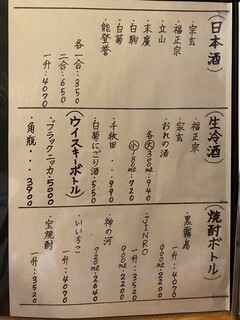 (日本酒)
・宗玄
・福正宗
・立山
・末廣
・白駒
・白菊
・能登誉
各一合:350
二合:650
一升:4070
(生冷酒)
・福正宗
・宗玄
・おれの酒
各(大)300ml:940
(小)180ml:720
・千秋田
・白菊にごり酒:550
(ウイスキーボトル)
・ブラックニッカ:5000
・角瓶・・・3900
(焼酎ボトル)
・黒霧島
900ml:2200
一升:4070
・JINRO
一升:3520
900ml:2200
・神の河
720ml:2640
・いいちこ
一升:4070
・宝焼酎
一升:3520